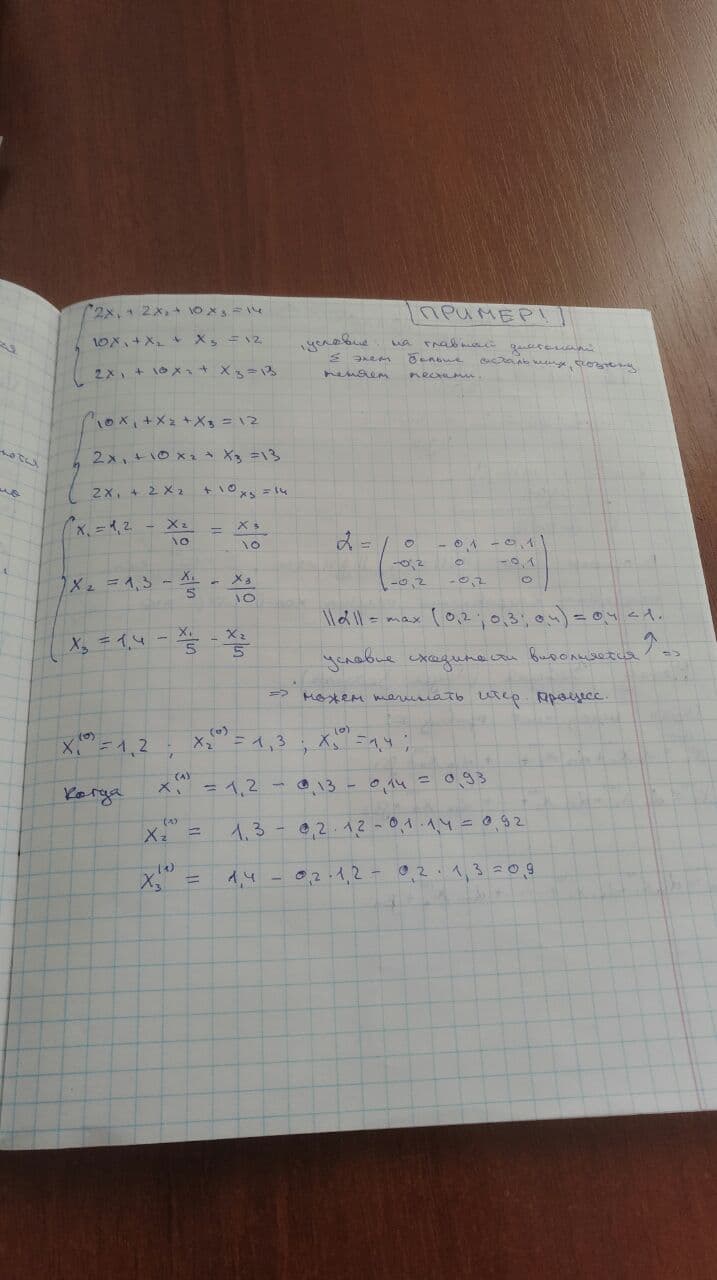 2x₁ + 2x₂ + 10x₃ = 14
ПРИМЕР!
10x₁ + x₂ + x₃ = 12
условие: на главной диагонали
Σ элем больше остальных, поэтому
2x₁ + 10x₂ + x₃ = 13
меняем местами.
10x₁ + x₂ + x₃ = 12
2x₁ + 10x₂ + x₃ = 13
2x₁ + 2x₂ + 10x₃ = 14
x₁ = 1,2 - x₂/10 = x₃/10
x₂ = 1,3 - x₁/5 - x₃/10
x₃ = 1,4 - x₁/5 - x₂/5
α = ( 0 -0,1 -0,1
-0,2 0 -0,1
-0,2 -0,2 0 )
||α|| = max (0,2; 0,3; 0,4) = 0,4 < 1.
условие сходимости выполняется ⇒
⇒ можем начинать итер. процесс.
x₁⁽⁰⁾ = 1,2 ; x₂⁽⁰⁾ = 1,3 ; x₃⁽⁰⁾ = 1,4 ;
Когда x₁⁽¹⁾ = 1,2 - 0,13 - 0,14 = 0,93
x₂⁽¹⁾ = 1,3 - 0,2·1,2 - 0,1·1,4 = 0,92
x₃⁽¹⁾ = 1,4 - 0,2·1,2 - 0,2·1,3 = 0,9